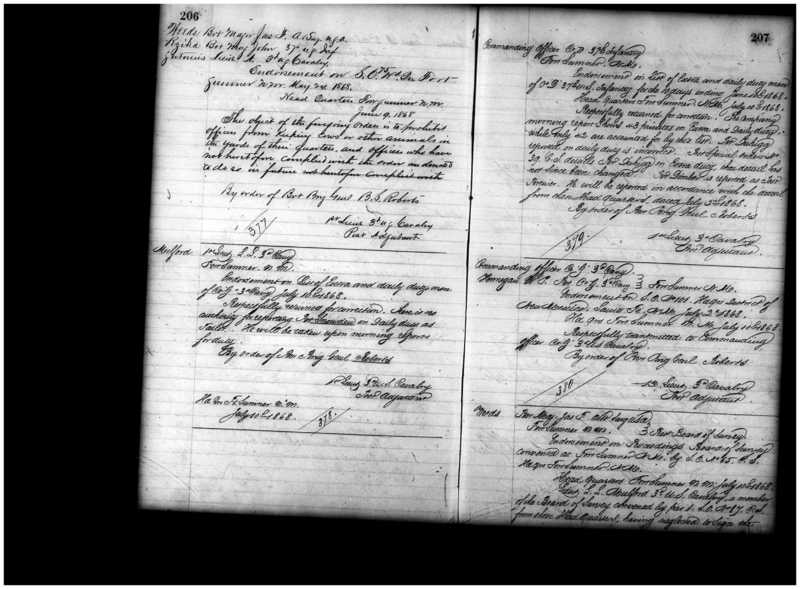 206
Weeds Bvt Major Jas F. A Surg U.S.A.
Bvt Maj John 37" U.S. Inf
Lieut A. 3d U.S. Cavalry.
Endorsement on S.O. No Fort
Sumner N.M. May 2nd 1868.
Head Quarters Fort Sumner N.M.
June 9. 1868
The object of the foregoing order is to prohibit
officers from keeping Cows or other animals in
the yards of their quarters, and officers who have
not heretofore complied with the order are directed
to do so in future
By order of Bvt Brig Genl B.S. Roberts
377
1st Lieut 3d U.S. Cavalry
Post Adjutant
Mulford 1st Lieut L. L. 3d Cavy
Fort Sumner N.M.
Endorsement on List of Extra and daily duty men
of Co "G" 3d Cavy July 10th 1868.
Respectfully returned for correction. There is no
authority for reporting Pvt on Daily duty as
Tailor. He will be taken upon morning reports
for duty.
By order of Bvt Brig Genl Roberts
1st Lieut 3d U.S. Cavalry
Post Adjutant
Hd Qrs Ft Sumner N.M.
July 10th 1868.
378.
207
Commanding Officer Co D 37th Infantry
Fort Sumner N.Mo.
Endorsement on List of Extra and daily duty men
of Co D 37th U.S. Infantry for the 10 days ending 1868.
Head Quarters Fort Sumner N.Mo. July 10th 1868.
Respectfully returned for correction. The company
morning report shows 43 privates on Extra and Daily duty
while only 42 are accounted for by this list.
reported on daily duty is incorrect.
on Extra duty that detail has
not since been changed. is reported as
He will be reported in accordance with the detail
from these Head Quarters dated July 3d 1868.
By order of Bvt Brig Genl Roberts
379.
1st Lieut 3d Cavalry
Post Adjutant.
Commanding Officer Co "G" 3d Cavy
Finnegan Pvt Co "G" 3d Cavy Fort Sumner N.Mo.
Endorsement on S.O. No 108. Hd Qrs District of
New Mexico Santa Fe N.Mo July 2nd 1868.
Hd Qrs Fort Sumner N. Mo July 11th 1868
Respectfully transmitted to Commanding
Officer Co "G" 3d U.S. Cavalry
By order of Bvt Brig Genl Roberts
380
1st Lieut 3d Cavalry
Post Adjutant
Weeds Bvt Maj. Jas F. Asst Surg U.S.A.
Fort Sumner N.M. Pres Board of Survey
Endorsement on Proceedings Board of Survey
convened at Fort Sumner N.Mo. by S.O. No 85. C.S.
Hd Qrs Fort Sumner N.Mo.
Head Quarters Fort Sumner N.M. July 11th 1868
Lieut L. L. Mulford 3d U.S. Cavalry, a member
of the Board of Survey convened by par 1. S.O. No 87. C.S.
from these Head Quarters, having neglected to sign the